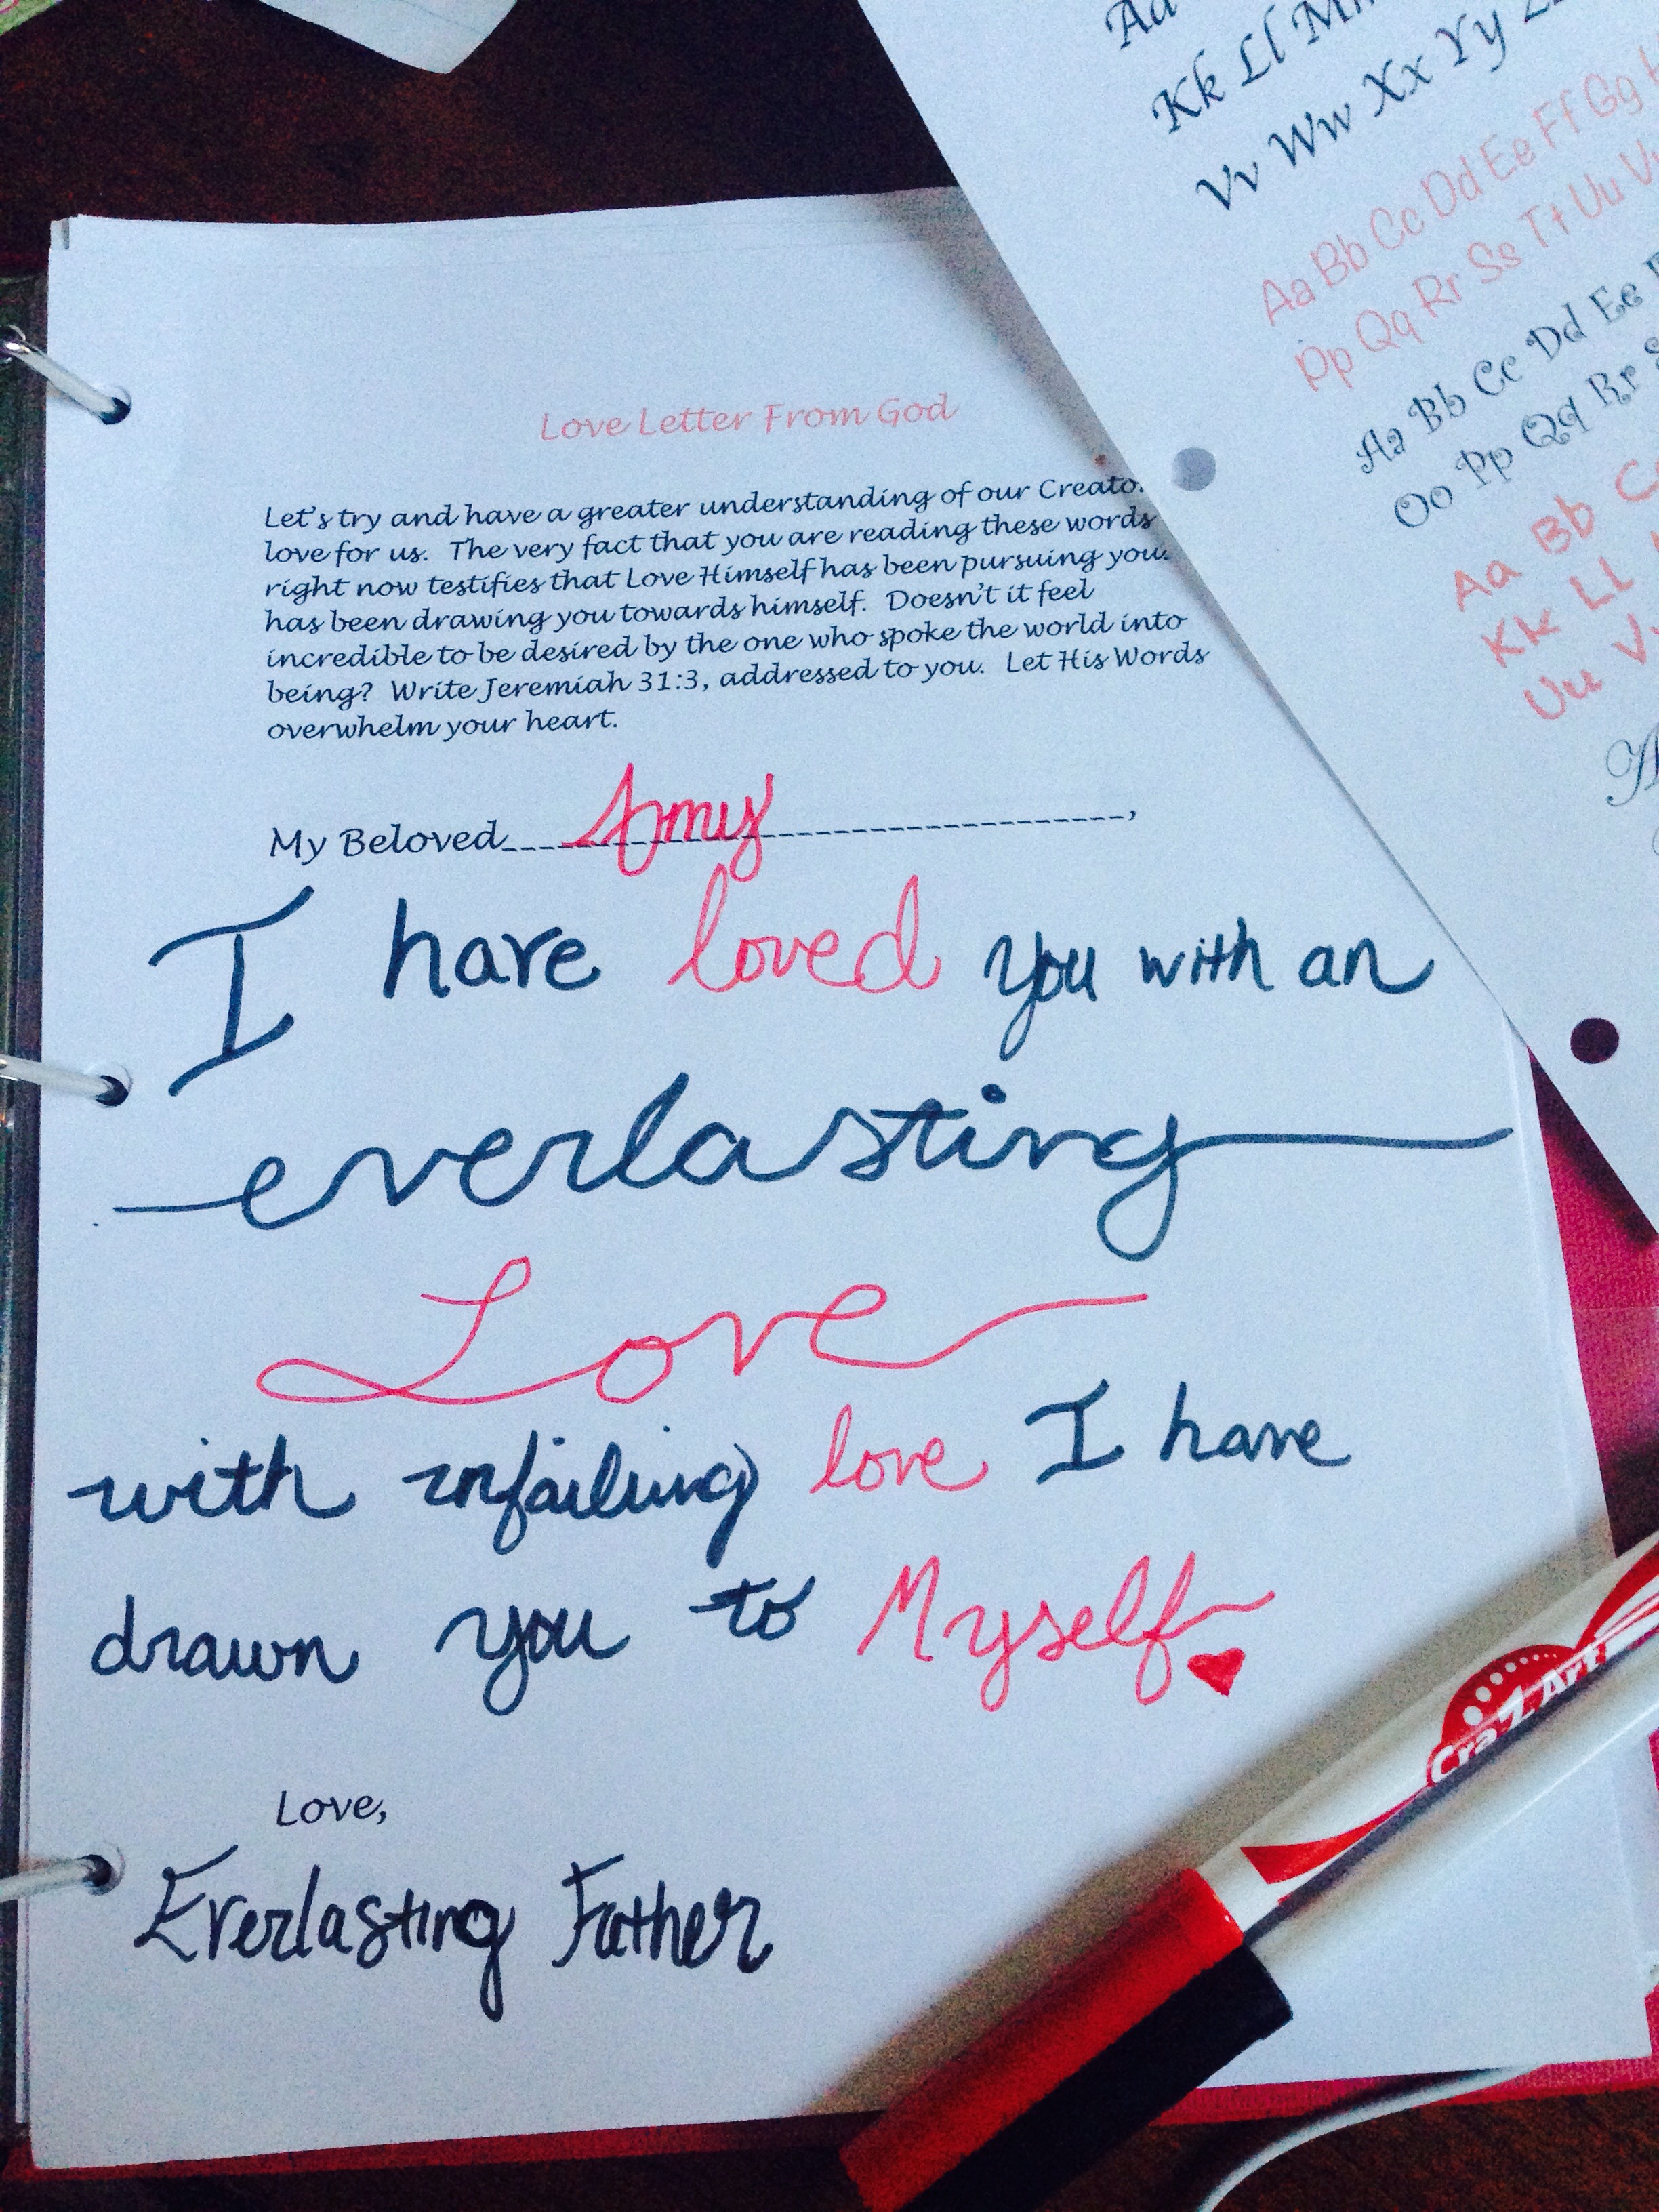 Aa
Kk Ll Mm
Vv Ww Xx Yy Zz
Aa Bb Cc Dd Ee Ff Gg
Pp Qq Rr Ss Tt Uu Vv
Aa Bb Cc Dd Ee
Oo Pp Qq Rr
Aa Bb
Kk Ll
Uu
Love Letter From God
Let's try and have a greater understanding of our Creato
love for us. The very fact that you are reading these words
right now testifies that Love Himself has been pursuing you.
has been drawing you towards himself. Doesn't it feel
incredible to be desired by the one who spoke the world into
being? Write Jeremiah 31:3, addressed to you. Let His Words
overwhelm your heart.
My Beloved Amy,
I have loved you with an
everlasting
Love
with unfailing love I have
drawn you to Myself
Love,
Everlasting Father
Cra Z Art